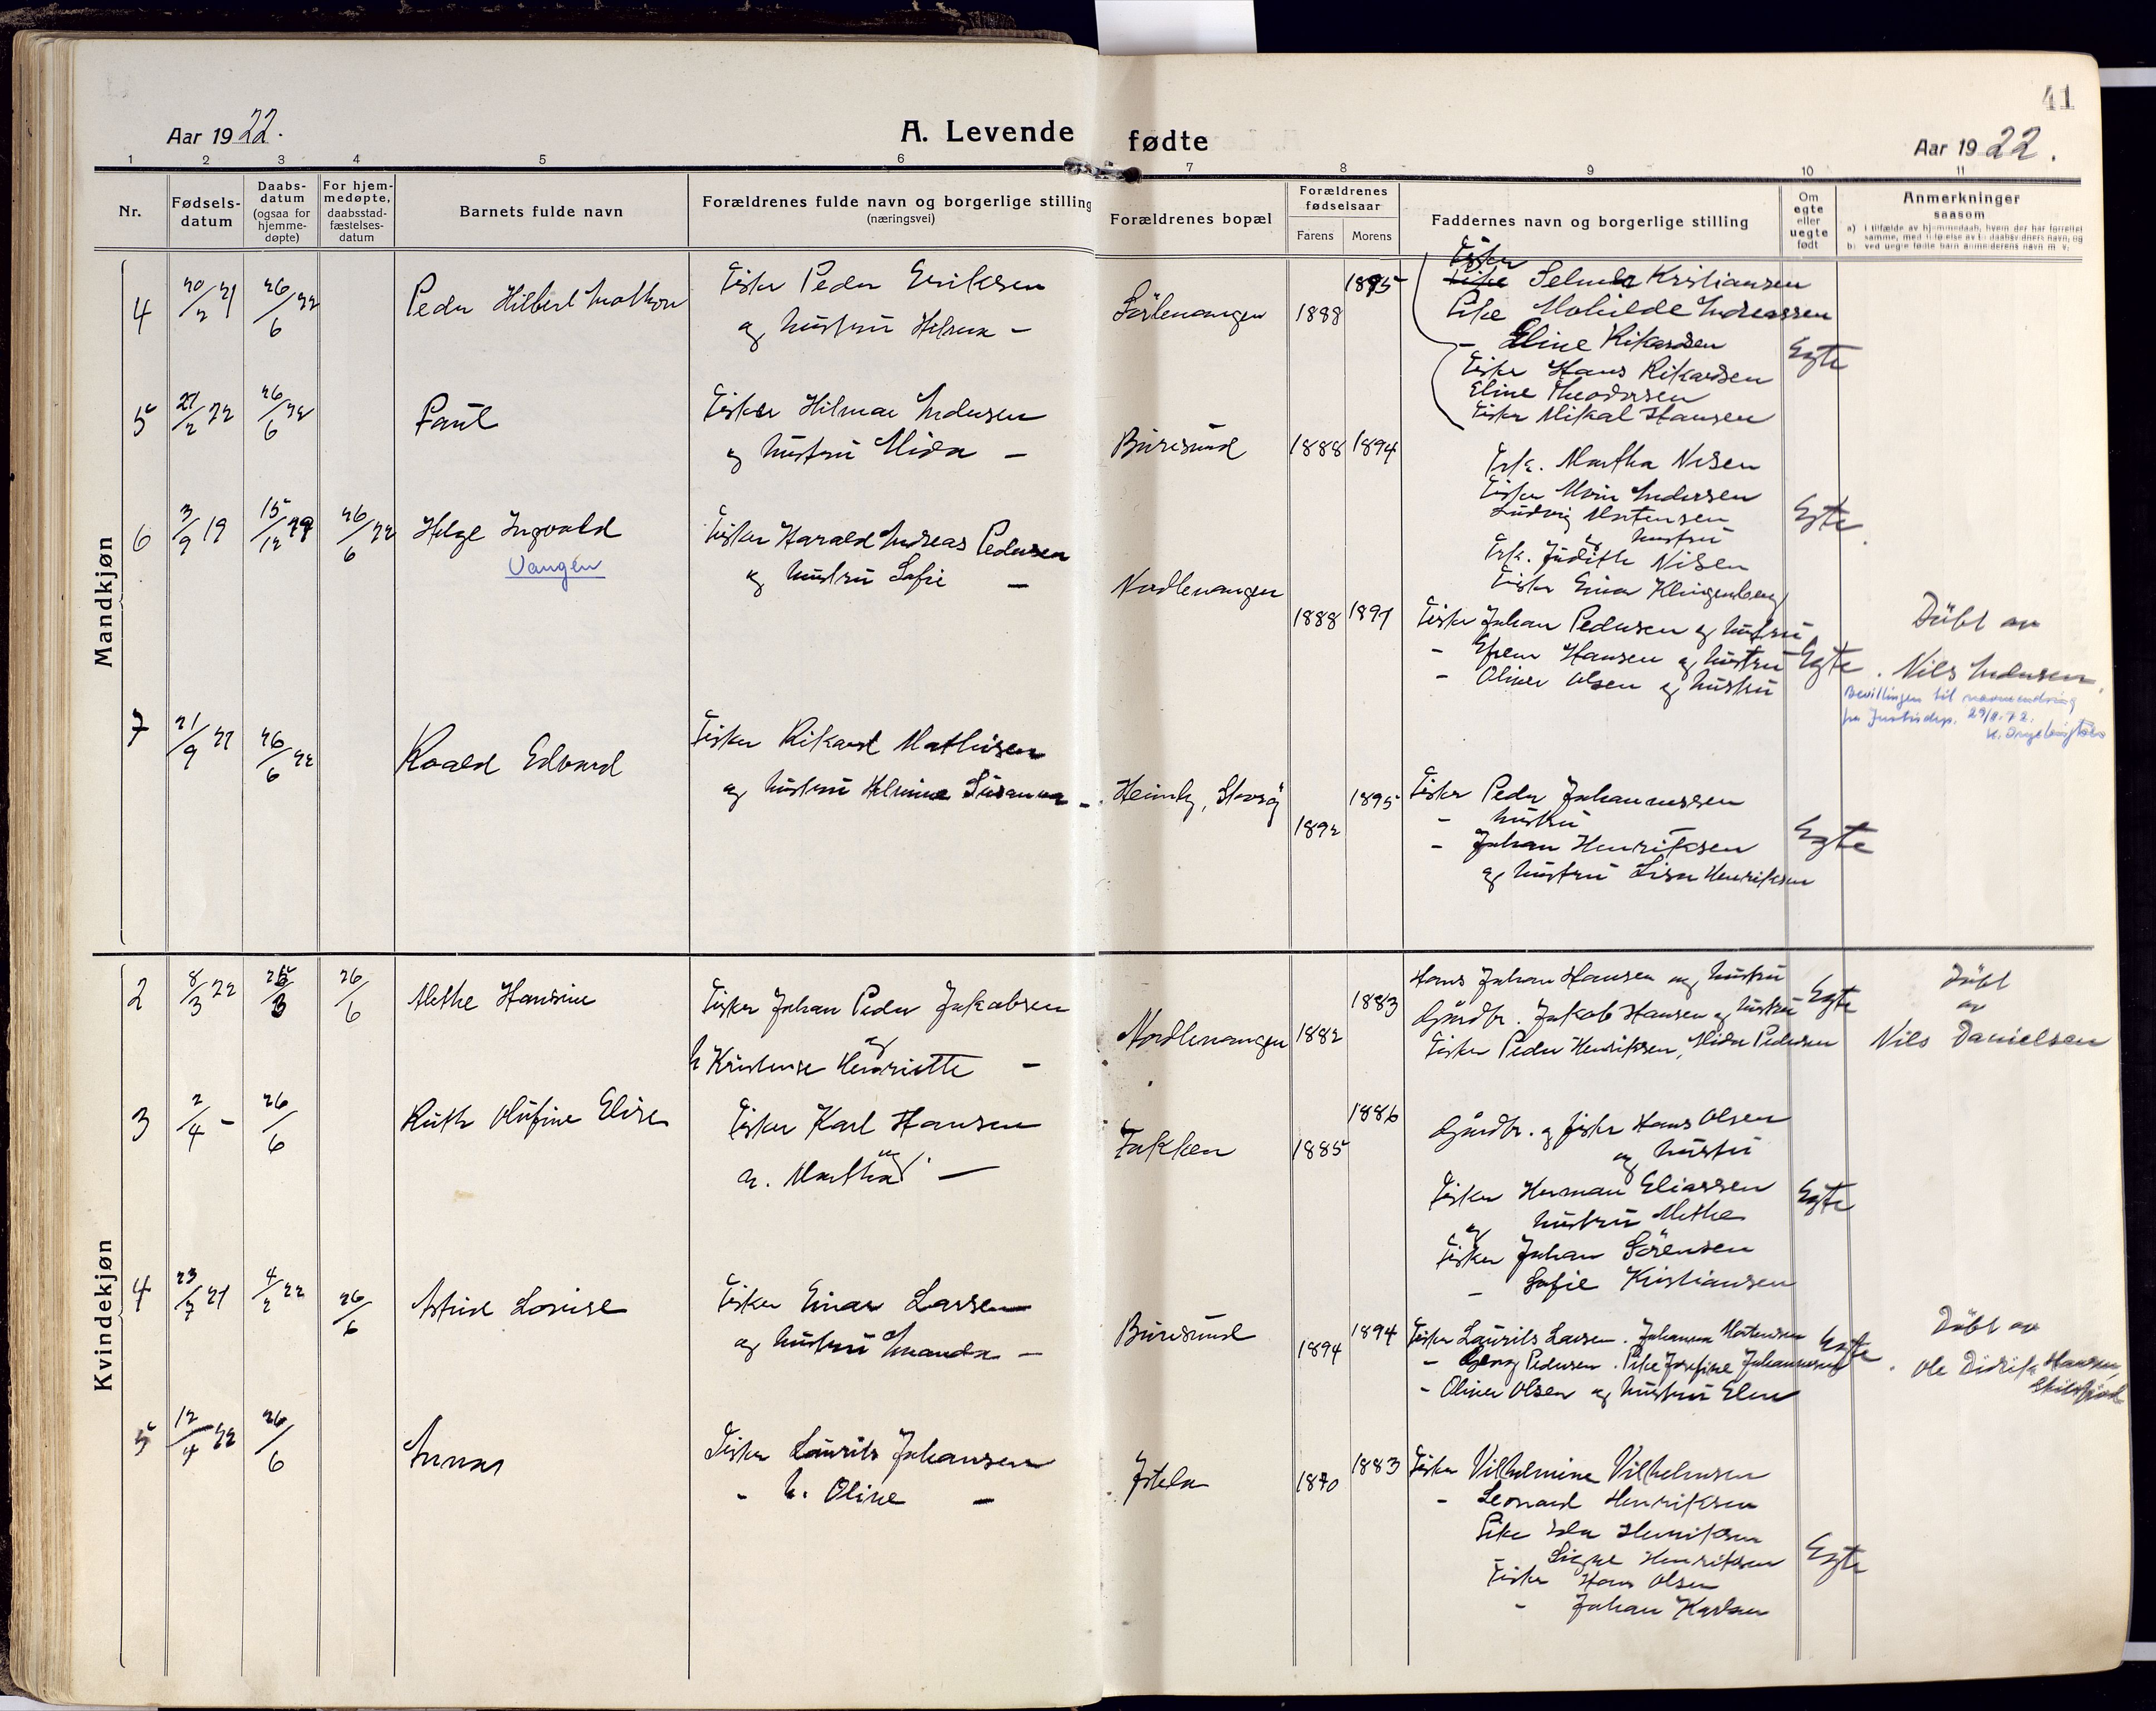 41
Aar 1922.
A. Levende fødte
Aar 1922.
1 2 3 4 5 6 7 8 9 10 11
Nr.
Fødsels-
datum
Daabs-
datum
(ogsaa for
hjemme-
døpte)
For hjem-
medøpte,
daabsstad-
fæstelses-
datum
Barnets fulde navn
Forældrenes fulde navn og borgerlige stilling
(næringsvei)
Forældrenes bopæl
Forældrenes
fødselsaar
Farens Morens
Faddernes navn og borgerlige stilling
Om
egte
eller
uegte
født
Anmerkninger
saasom
a) i tilfælde av hjemmedaab, hvem der har forrettet
samme, med tilføielse av
b) ved uegte fødte barn anmelderens navn m. v.
Mandkjøn
4 20/2 21 26/6 22 Peder Hilbert
Fisker Peder Eriksen
og hustru Helma –
Sörlenangen 1888 1895
Fisker
Pike Selma Kristiansen
Pike Mohilde Andreassen
– Eline Rikardsen
Fisker Hans Rikardsen
Eline Theodorsen
Fisker Mikal Hansen
Egte
5 27/2 22 26/6 22 Paul
Fisker Hilmar Andersen
og hustru Alida –
Buresund 1888 1894
Frk. Martha Nisen
Fisker Andersen
Ludvig Mortensen
og hustru
Frk. Judith Nisen
Fisker Einar Klingenberg
Egte
6 3/9 19 15/12 19 26/6 22 Helge Ingvald
Vangen
Fisker Harald Andreas Pedersen
og hustru Sofie –
Nordlenangen 1888 1897
Fisker Johan Pedersen og hustru
– Efrem Hansen og hustru
– Oliver Olsen og hustru
Egte.
Döbt av
Nils Andersen,
Bevillingen til navnendring
fra Justisdep. 29/8.72.
7 21/9 21 26/6 22 Roald Edvard
Fisker Rikard Mathisen
og hustru Helmine Susanna –
Heimly, Skorøy 1892 1895
Fisker Peder Johannessen
– hustru
– Johan Henriksen
og hustru Lisa Henriksen
Egte
Kvindekjøn
2 8/3 22 26/3 26/6 Alethe Hansine
Fisker Johan Peder Jakobsen
og
h Kristense Henriette –
Nordlenangen 1882 1883
Hans Johan Hansen og hustru
Gårdbr. Jakob Hansen og hustru
Fisker Peder Henriksen, Alida Pedersen
Egte
Döbt
av
Nils Danielsen
3 2/4 – 26/6 Ruth Olufine Elise
Fisker Karl Hansen
og
h. Martha –
Fakken 1885 1886
Gårdbr. og fisker Hans Olsen
og hustru
Fisker Herman Eliassen
og hustru Alethe
Fisker Johan Sörensen
– Sofie Kristiansen
Egte
4 23/7 21 4/2 22 26/6 Astrid Lovise
Fisker Einar Larsen
og hustru Amanda –
Buresund 1894 1894
Fisker Laurits Larsen. Johanna Mortensen
– Georg Pedersen. Pike Josefine Johannesen
– Oliver Olsen og hustru Elen
Egte.
Döbt av
Ole Didrik Hansen,
5 12/4 22 26/6 Anna
Fisker Laurits Johansen
– h. Oline –
Jstela 1870 1883
Fisker Vilhelmine Vilhelmsen
– Leonard Henriksen
Pike Ida Henriksen
– Signe Henriksen
Fisker Hans Olsen
– Johan Karlsen
Egte